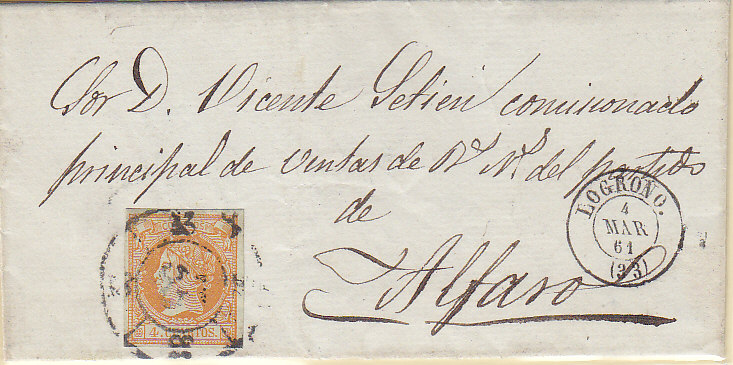 Sor D. Vicente Setien comisionado
principal de ventas de B.s N.s del partido
de
Alfaro
LOGROÑO.
4
MAR
61
(33)
4 CUARTOS